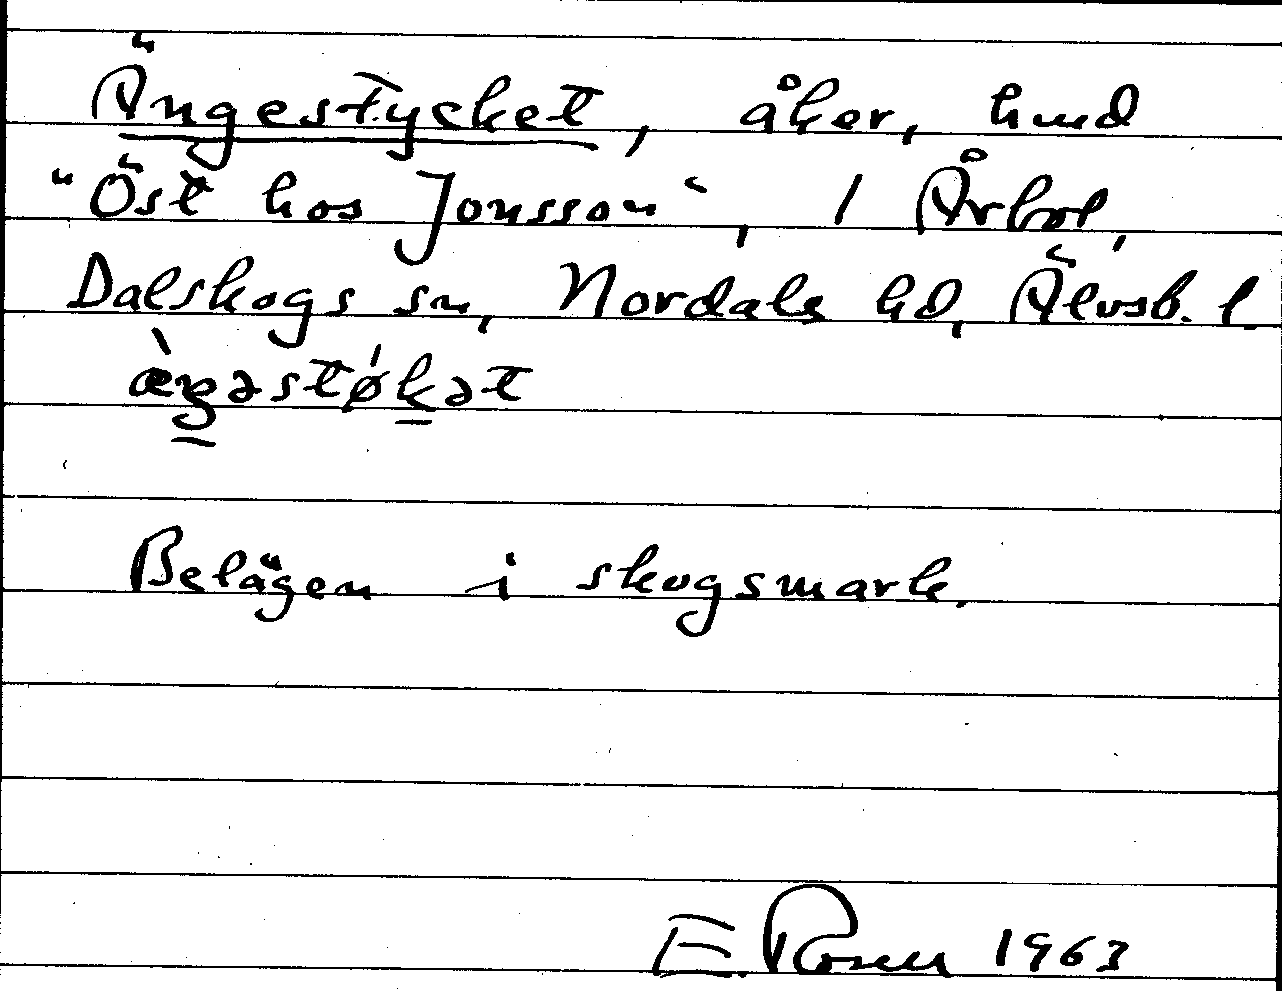 Ängestycket, åker, hmd
"Öst hos Jonsson", 1 Årbol,
Dalskogs sn, Nordals hd, Älvsb. l.
æ̀ŋəstǿkət
Belägen i skogsmark.
E. Rosen 1963